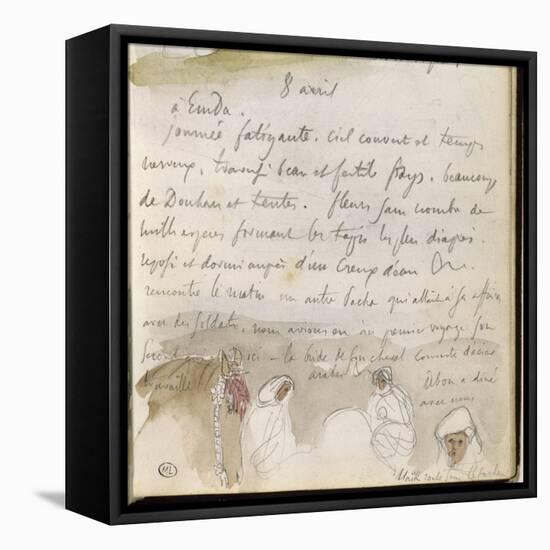 8 avril
à Emda.
journée fatigante. ciel couvert et temps
nerveux, traversé beau et fertile pays. beaucoup
de Douhars et tentes. fleurs sans nombre de
mille espèces formant les tapis les plus diaprés.
reposé et dormi auprès d'un creux d'eau
rencontré le matin un autre Pacha qui allait à
avec des soldats. nous avions au premier voyage son
second ici - la bride de son cheval
travaillé
arabe
Abou a diné
avec nous
ML